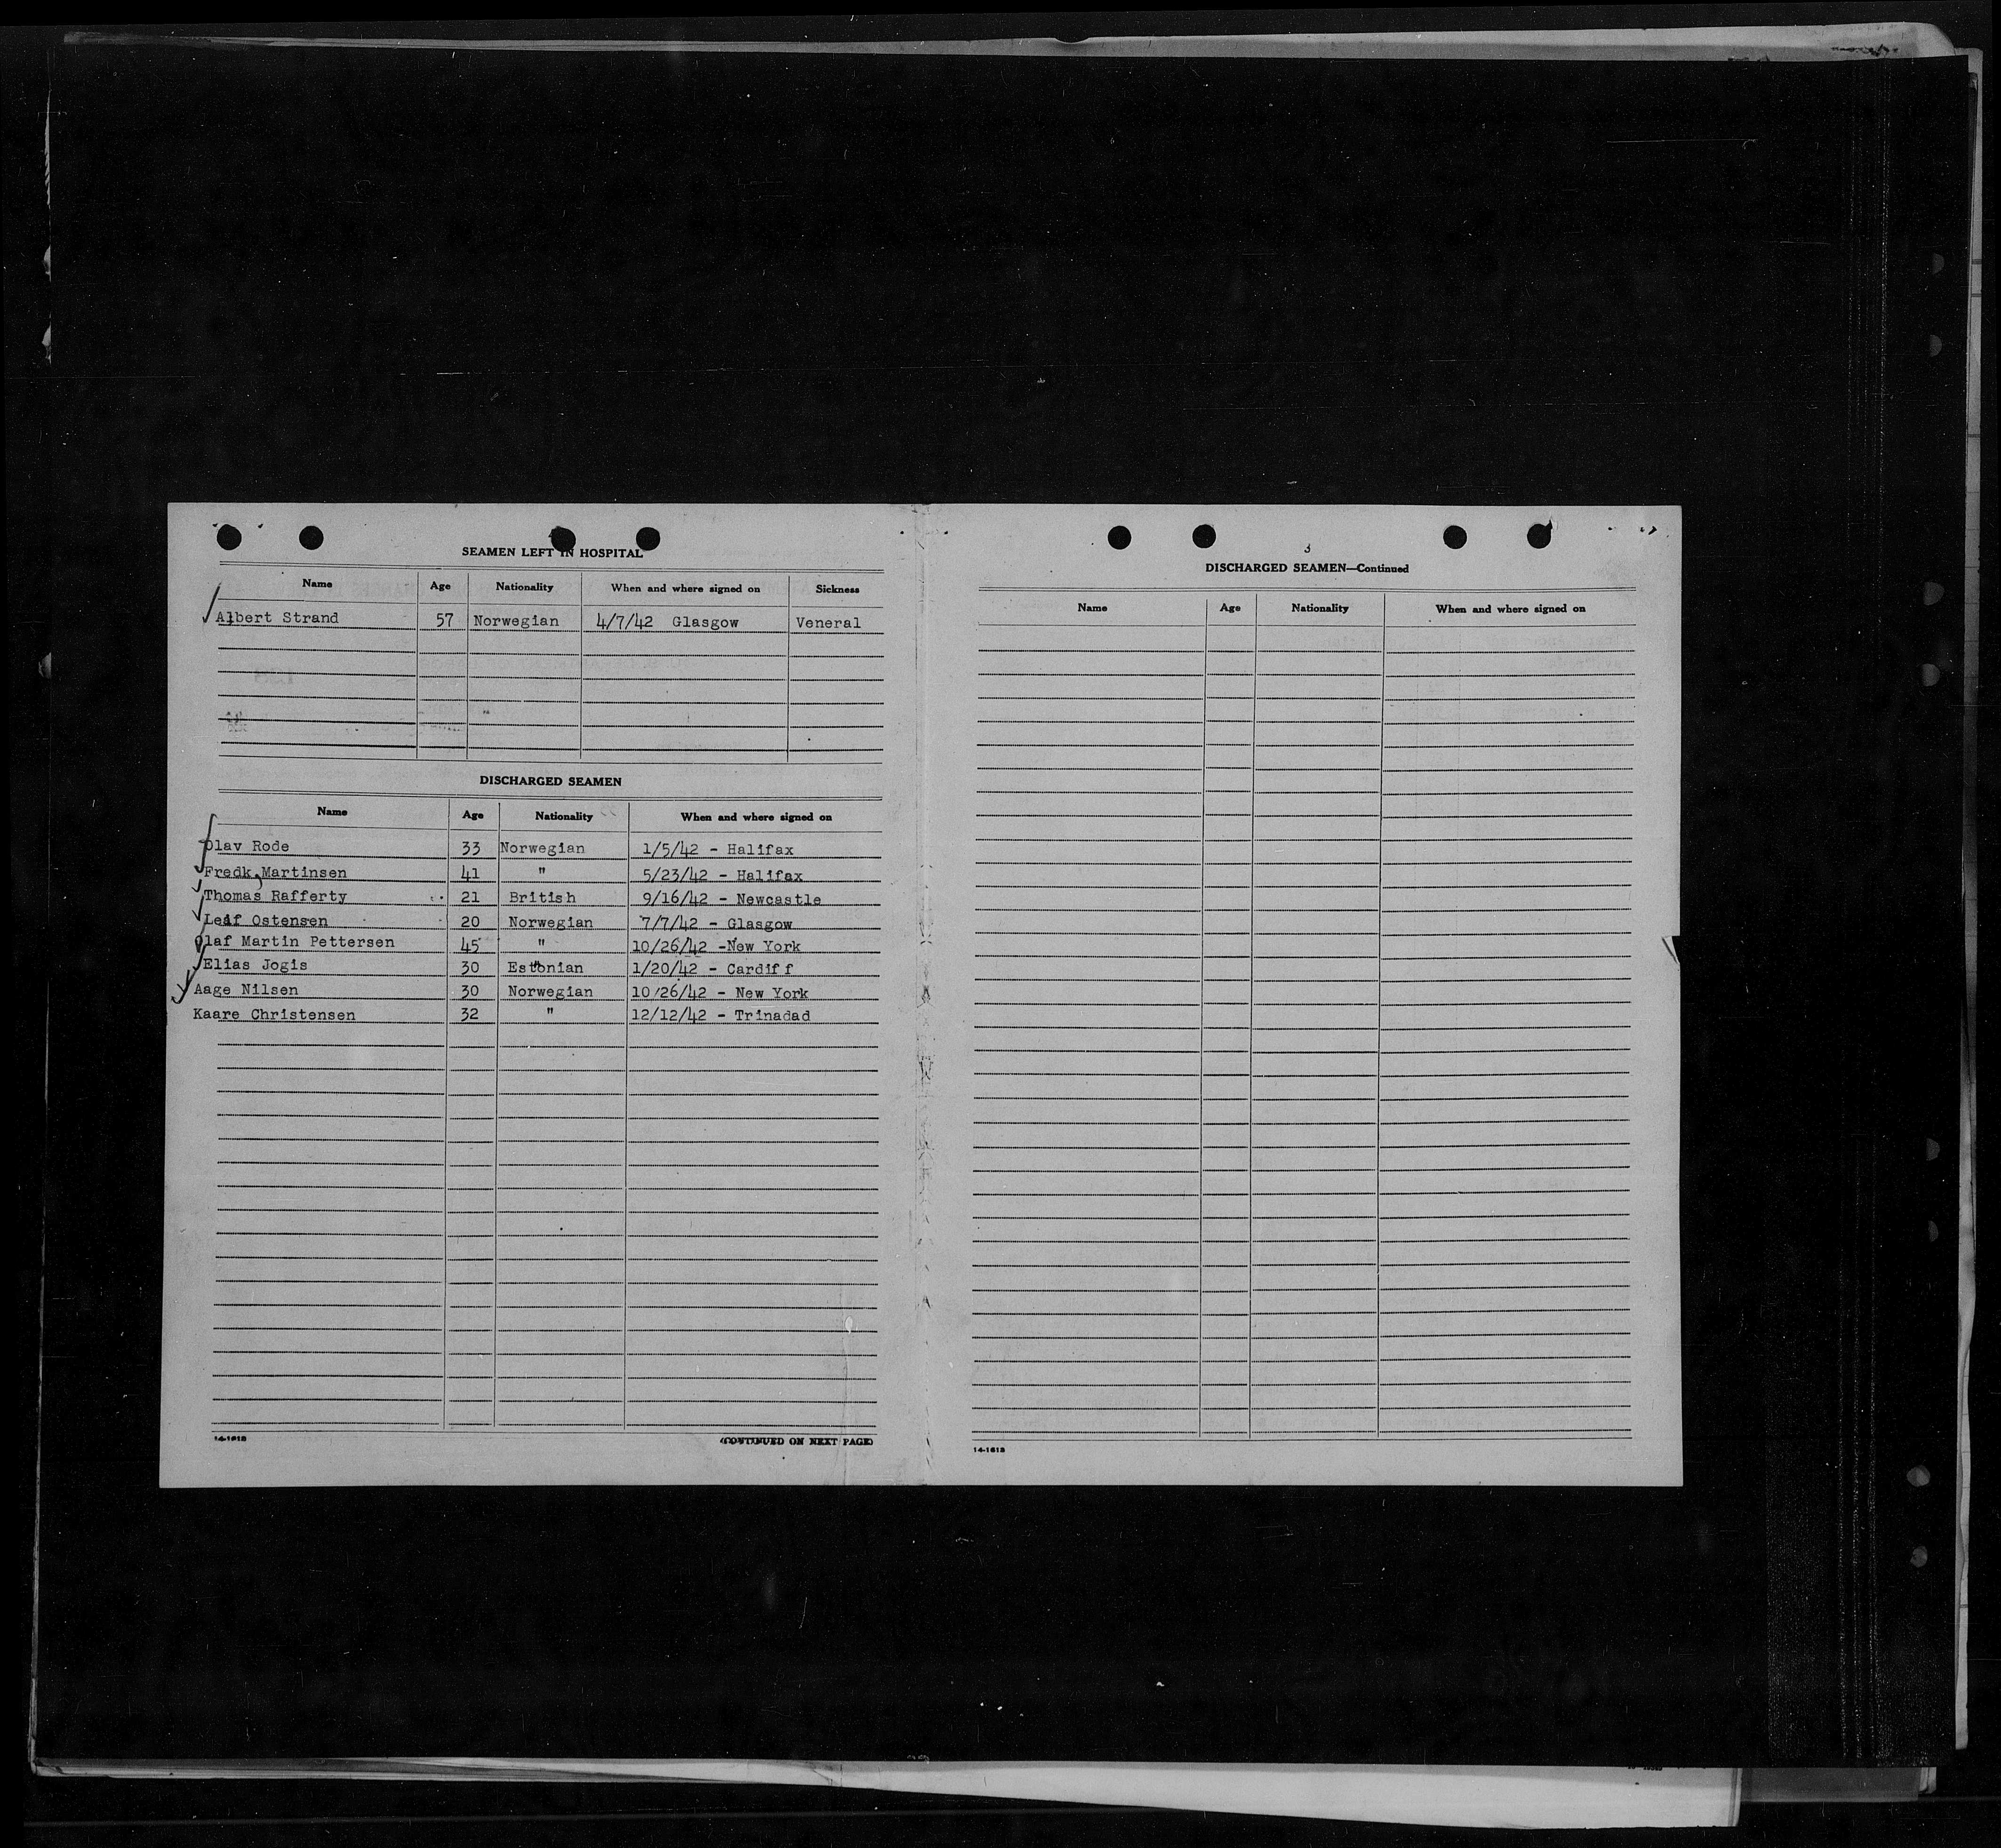 SEAMEN LEFT IN HOSPITAL
Name Age Nationality When and where signed on Sickness
Albert Strand 57 Norwegian 4/7/42 Glasgow Veneral
DISCHARGED SEAMEN
Name Age Nationality When and where signed on
Olav Rode 33 Norwegian 1/5/42 - Halifax
Fredk, Martinsen 41 " 5/23/42 - Halifax
Thomas Rafferty 21 British 9/16/42 - Newcastle
Leif Ostensen 20 Norwegian 7/7/42 - Glasgow
Olaf Martin Pettersen 45 " 10/26/42 -New York
Elias Jogis 30 Estonian 1/20/42 - Cardiff
Aage Nilsen 30 Norwegian 10/26/42 - New York
Kaare Christensen 32 " 12/12/42 - Trinadad
14-1618 (CONTINUED ON NEXT PAGE)
3
DISCHARGED SEAMEN—Continued
Name Age Nationality When and where signed on
14-1618